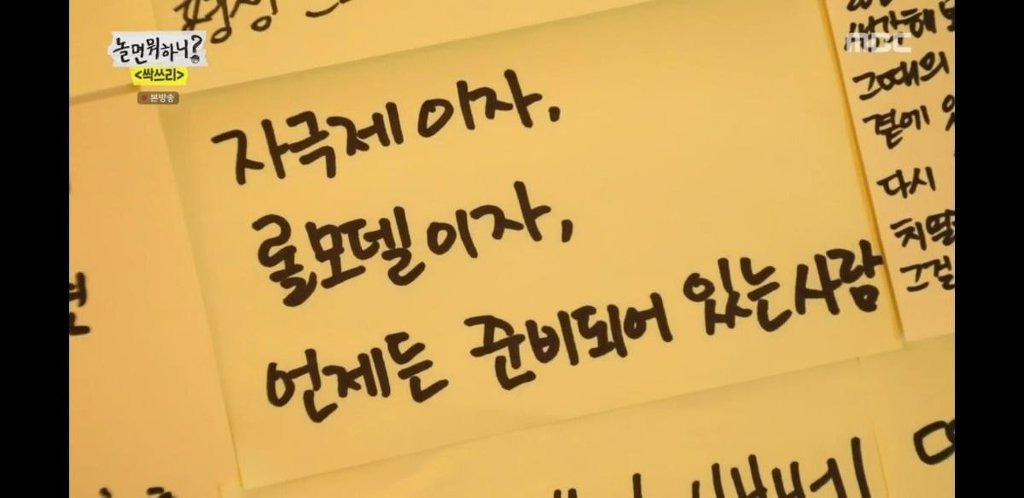 놀면 뭐하니?
<싹쓰리>
본방송
MBC
자극제이자,
롤모델이자,
언제든 준비되어 있는사람
그때의
곁에
다시
그걸